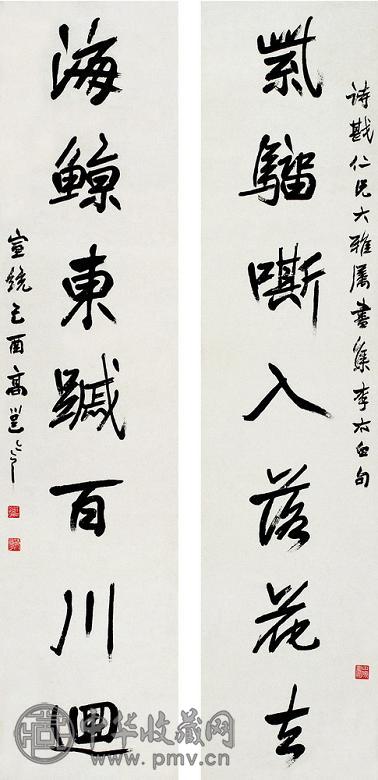 詩戡仁兄大雅屬書集李太白句
紫騮嘶入落花去
海鯨東䠞百川迴
宣統己酉高邕之
中华收藏网
www.pmv.cn